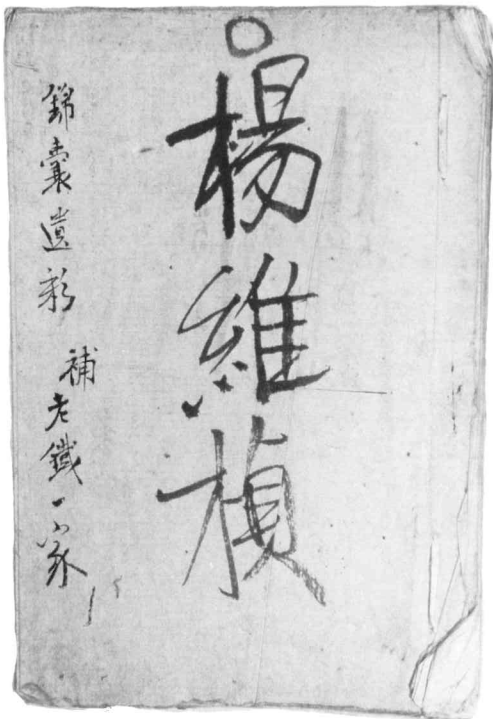 楊維楨
錦囊遺
補老鐵一